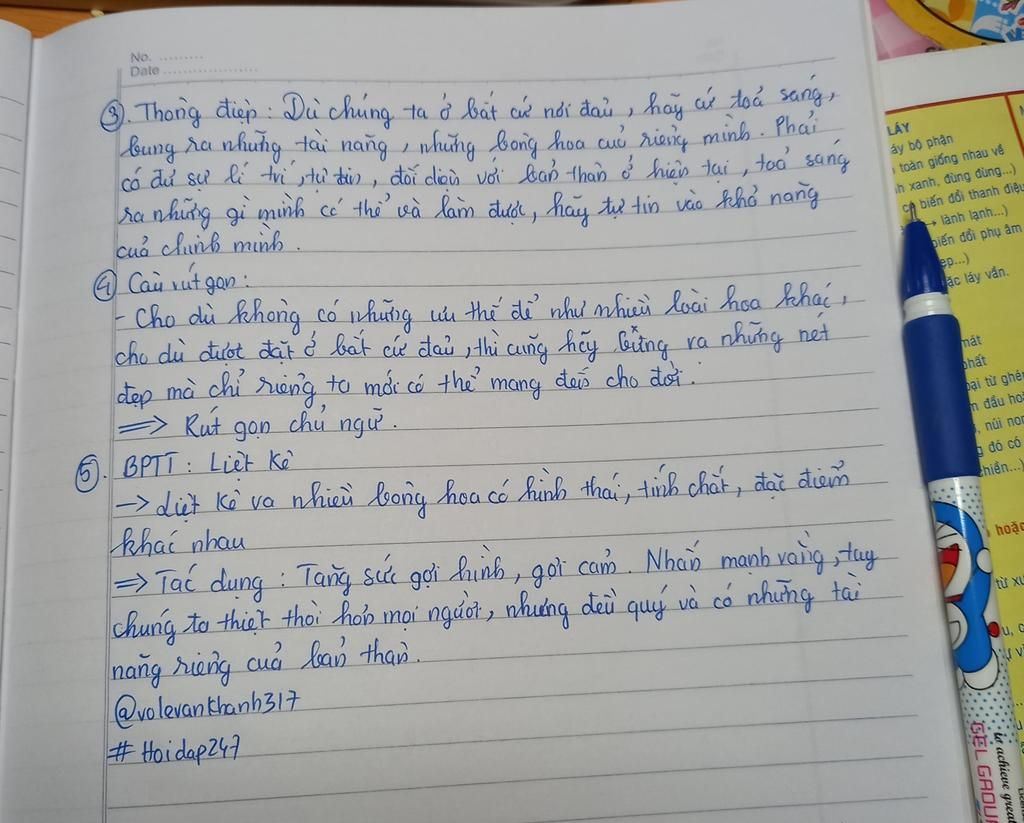 No. .........
Date ....................
③. Thông điệp : Dù chúng ta ở bất cứ nơi đâu, hãy cứ toả sáng,
bung ra những tài năng, những bông hoa cuả riêng mình. Phải
có đủ sự lí trí, tự tin, đối diện với bản thân ở hiện tại, toả sáng
ra những gì mình có thể và làm được, hãy tự tin vào khả năng
cuả chính mình.
④ Câu rút gọn :
- Cho dù không có những ưu thế để như nhiều loài hoa khác,
cho dù được đặt ở bất cứ đâu, thì cũng hãy bừng ra những nét
đẹp mà chỉ riêng ta mới có thể mang đến cho đời.
=> Rút gọn chủ ngữ.
⑤. BPTT : Liệt kê
-> Liệt kê ra nhiều bông hoa có hình thái, tính chất, đặc điểm
khác nhau
=> Tác dụng : Tăng sức gợi hình, gợi cảm. Nhấn mạnh rằng, tuy
chúng ta thiệt thòi hơn mọi người, nhưng đều quý và có những tài
năng riêng cuả bản thân.
@volevankhanh317
# Hoidap247
LÁY
áy bộ phận
toàn giống nhau về
h xanh, đùng đùng...)
biến đổi thanh điệu
→ lành lạnh...)
biến đổi phụ âm
ẹp...)
ặc láy vần.
mát
phất
oại từ ghép
m đầu
, núi non
g đó có
chiền...)
hoặc
từ
GEL
to achieve great